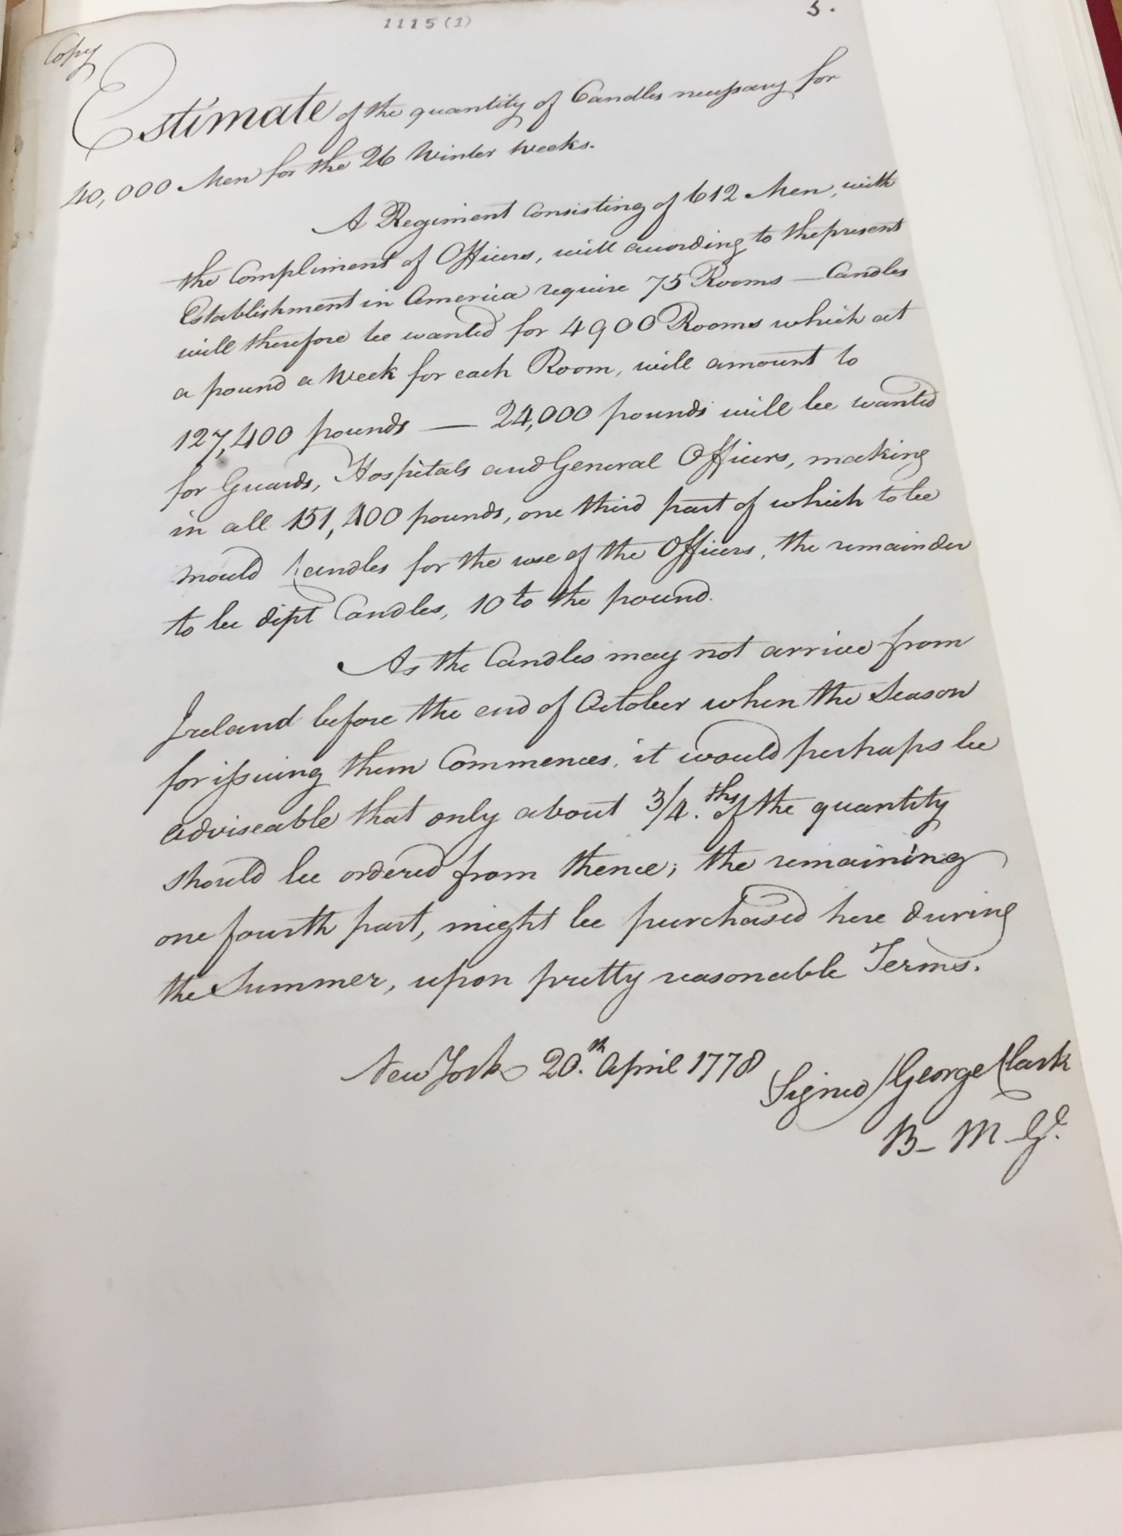 1115(1)
5.
Copy
Estimate of the quantity of Candles necessary for
40,000 Men for the 26 Winter Weeks.
A Regiment consisting of 612 Men, with
the Compliment of Officers, will according to the present
Establishment in America require 75 Rooms — Candles
will therefore be wanted for 4900 Rooms which at
a pound a Week for each Room, will amount to
127,400 pounds — 24,000 pounds will be wanted
for Guards, Hospitals and General Officers, making
in all 151,400 pounds, one third part of which to be
mould Candles for the use of the Officers, the remainder
to be dipt Candles, 10 to the pound.
As the Candles may not arrive from
Ireland before the end of October when the Season
for issuing them Commences, it would perhaps be
adviseable that only about 3/4.ths of the quantity
should be ordered from thence; the remaining
one fourth part, might be purchased here during
the Summer, upon pretty reasonable Terms.
New York 20.th April 1778
Signed / George Clark
B— M G.l